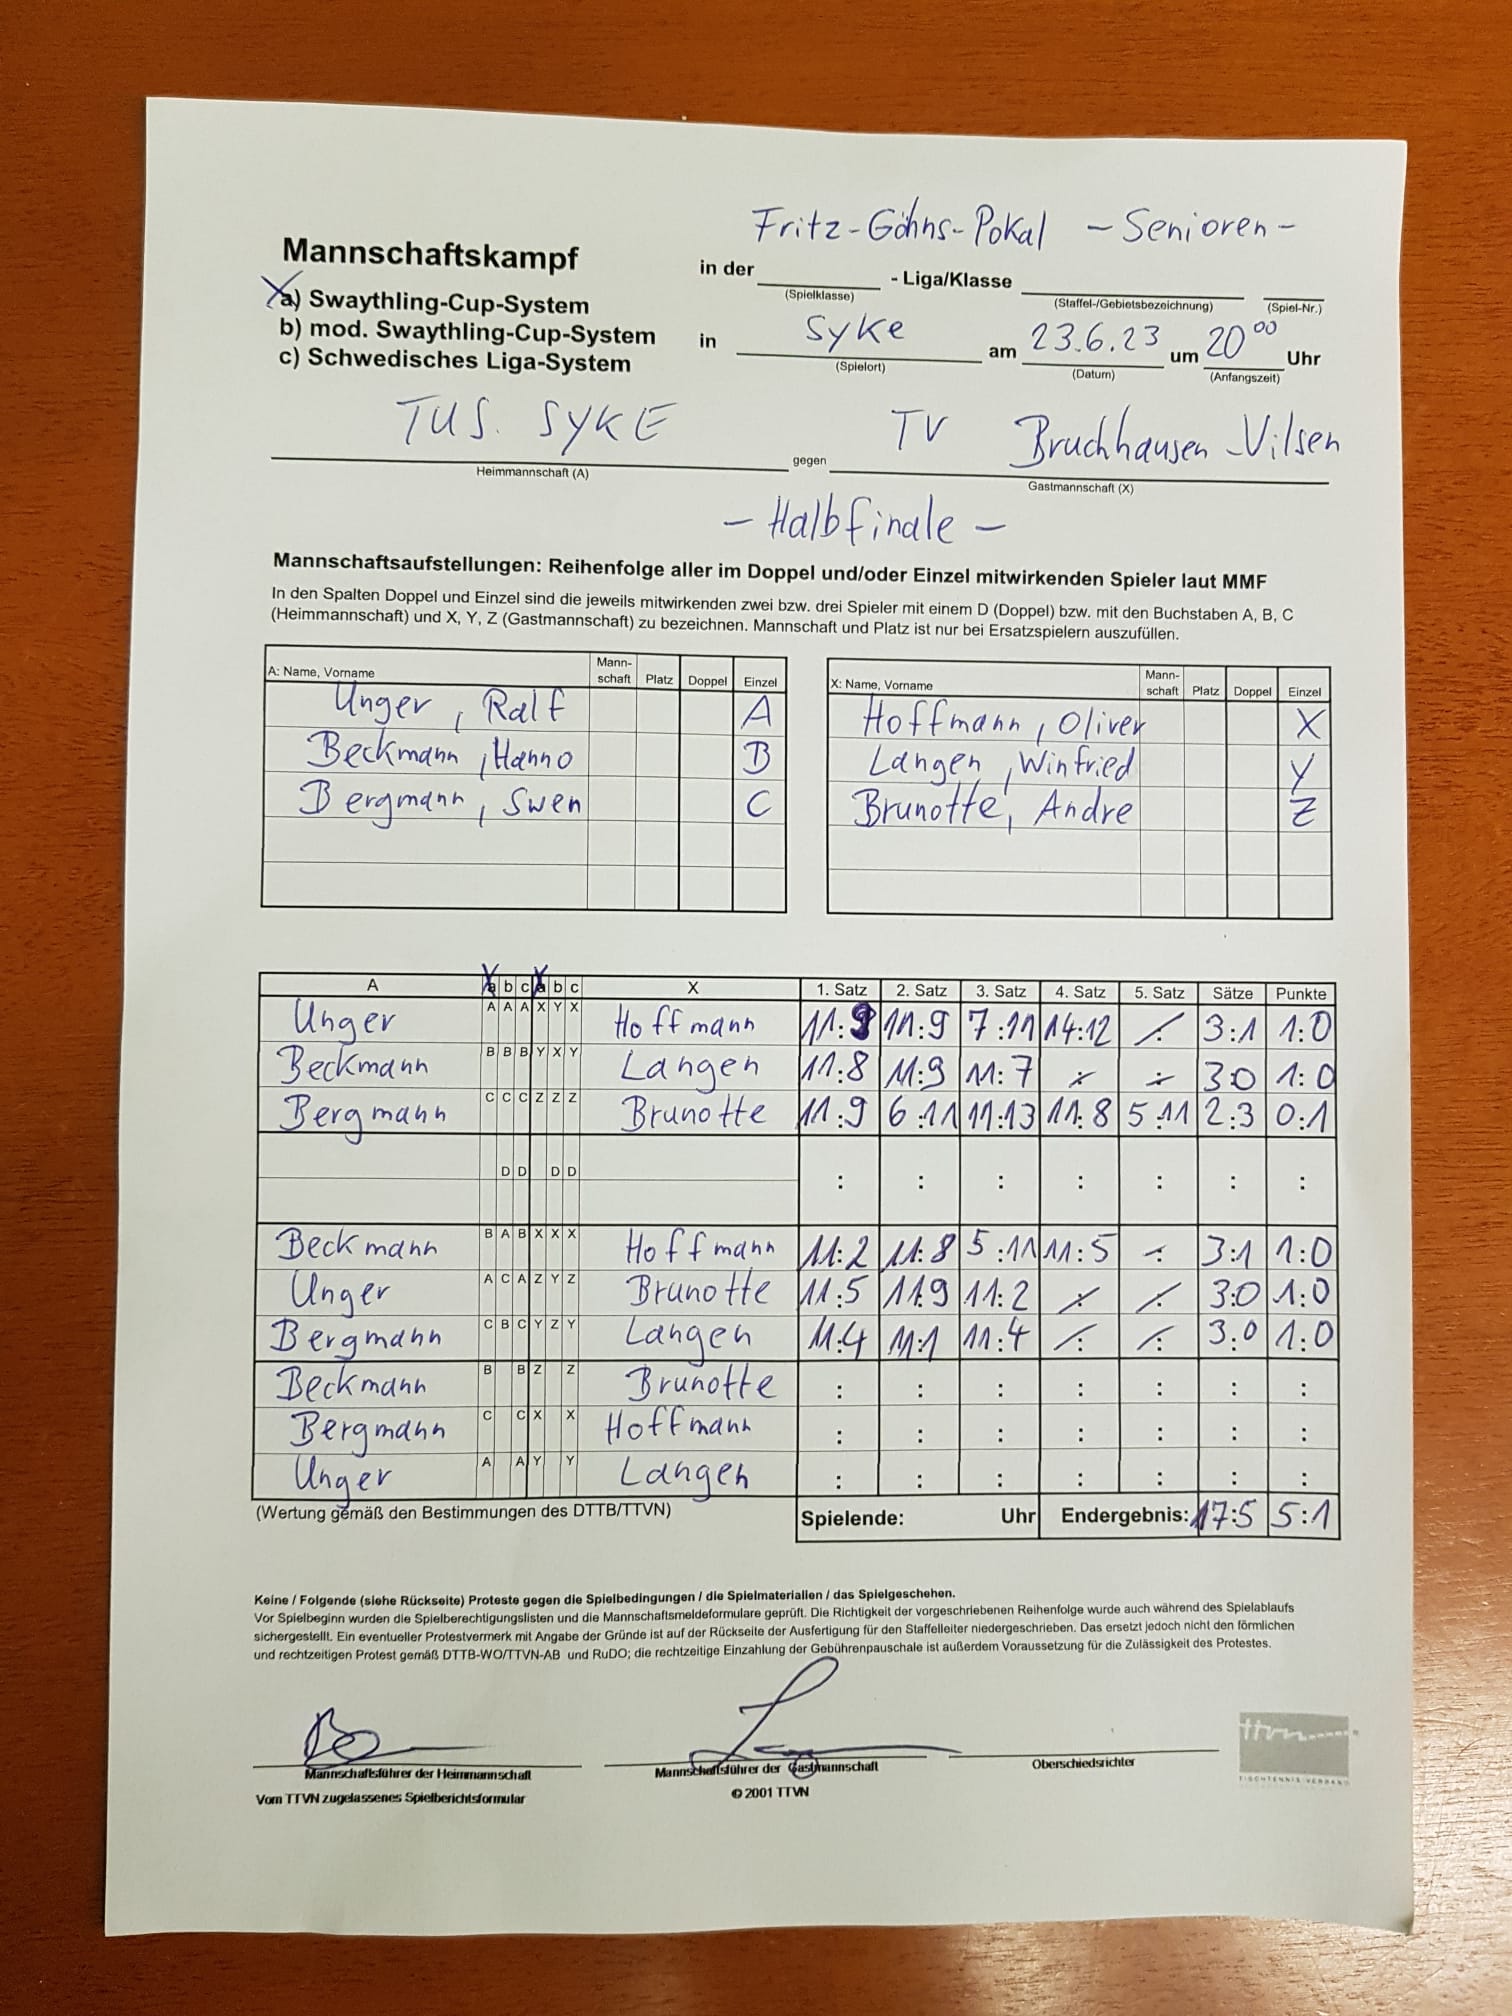 Fritz-Göhns-Pokal - Senioren -
Mannschaftskampf
in der - Liga/Klasse
(Spielklasse) (Staffel-/Gebietsbezeichnung) (Spiel-Nr.)
a) Swaythling-Cup-System
b) mod. Swaythling-Cup-System
c) Schwedisches Liga-System
in Syke am 23.6.23 um 20 00 Uhr
(Spielort) (Datum) (Anfangszeit)
TUS. SYKE gegen TV Bruchhausen-Vilsen
Heimmannschaft (A) Gastmannschaft (X)
- Halbfinale -
Mannschaftsaufstellungen: Reihenfolge aller im Doppel und/oder Einzel mitwirkenden Spieler laut MMF
In den Spalten Doppel und Einzel sind die jeweils mitwirkenden zwei bzw. drei Spieler mit einem D (Doppel) bzw. mit den Buchstaben A, B, C
(Heimmannschaft) und X, Y, Z (Gastmannschaft) zu bezeichnen. Mannschaft und Platz ist nur bei Ersatzspielern auszufüllen.
A: Name, Vorname Mann-schaft Platz Doppel Einzel
Unger, Ralf A
Beckmann, Hanno B
Bergmann, Swen C
X: Name, Vorname Mann-schaft Platz Doppel Einzel
Hoffmann, Oliver X
Langen, Winfried Y
Brunotte, Andre Z
A a b c a b c X 1. Satz 2. Satz 3. Satz 4. Satz 5. Satz Sätze Punkte
Unger A A A X Y X Hoffmann 11:9 11:9 7:11 14:12 : 3:1 1:0
Beckmann B B B Y X Y Langen 11:8 11:9 11:7 : : 3:0 1:0
Bergmann C C C Z Z Z Brunotte 11:9 6:11 11:13 11:8 5:11 2:3 0:1
D D D D : : : : : : :
Beckmann B A B X X X Hoffmann 11:2 11:8 5:11 11:5 : 3:1 1:0
Unger A C A Z Y Z Brunotte 11:5 11:9 11:2 : : 3:0 1:0
Bergmann C B C Y Z Y Langen 11:4 11:1 11:4 : : 3:0 1:0
Beckmann B B Z Z Brunotte : : : : : : :
Bergmann C C X X Hoffmann : : : : : : :
Unger A A Y Y Langen : : : : : : :
(Wertung gemäß den Bestimmungen des DTTB/TTVN) Spielende: Uhr Endergebnis: 17:5 5:1
Keine / Folgende (siehe Rückseite) Proteste gegen die Spielbedingungen / die Spielmaterialien / das Spielgeschehen.
Vor Spielbeginn wurden die Spielberechtigungslisten und die Mannschaftsmeldeformulare geprüft. Die Richtigkeit der vorgeschriebenen Reihenfolge wurde auch während des Spielablaufs
sichergestellt. Ein eventueller Protestvermerk mit Angabe der Gründe ist auf der Rückseite der Ausfertigung für den Staffelleiter niedergeschrieben. Das ersetzt jedoch nicht den förmlichen
und rechtzeitigen Protest gemäß DTTB-WO/TTVN-AB und RuDO; die rechtzeitige Einzahlung der Gebührenpauschale ist außerdem Voraussetzung für die Zulässigkeit des Protestes.
Mannschaftsführer der Heimmannschaft Mannschaftsführer der Gastmannschaft Oberschiedsrichter
ttvn
TISCHTENNIS-VERBAND
Vom TTVN zugelassenes Spielberichtsformular © 2001 TTVN